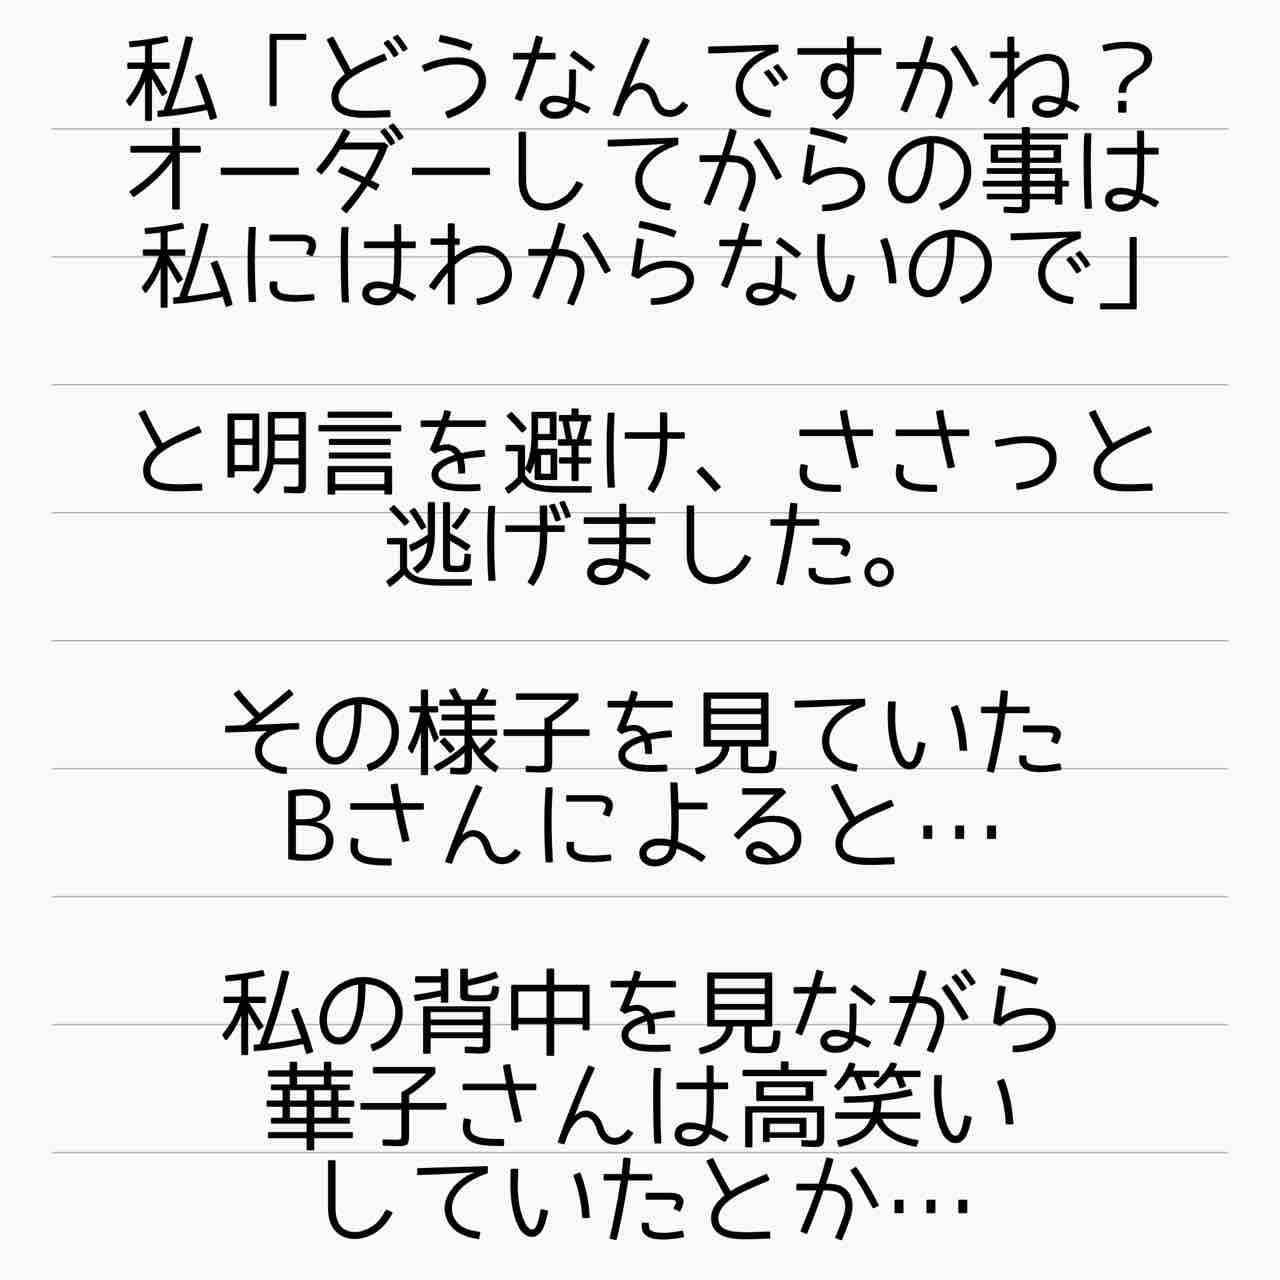 私「どうなんですかね？
オーダーしてからの事は
私にはわからないので」
と明言を避け、ささっと
逃げました。
その様子を見ていた
Bさんによると…
私の背中を見ながら
華子さんは高笑い
していたとか…